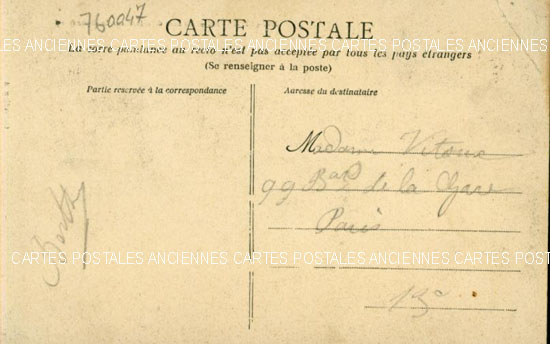 760047
CARTE POSTALE
CARTES POSTALES ANCIENNES CARTES POSTALES ANCIENNES CARTES POSTALES ANCIENNES
La correspondance au recto n'est pas acceptée par tous les pays étrangers
(Se renseigner à la poste)
Partie reservée à la correspondance
Adresse du destinataire
Madame
99 Bard de la Gare
Paris
CARTES POSTALES ANCIENNES CARTES POSTALES ANCIENNES CARTES POSTALES ANCIENNES
13e